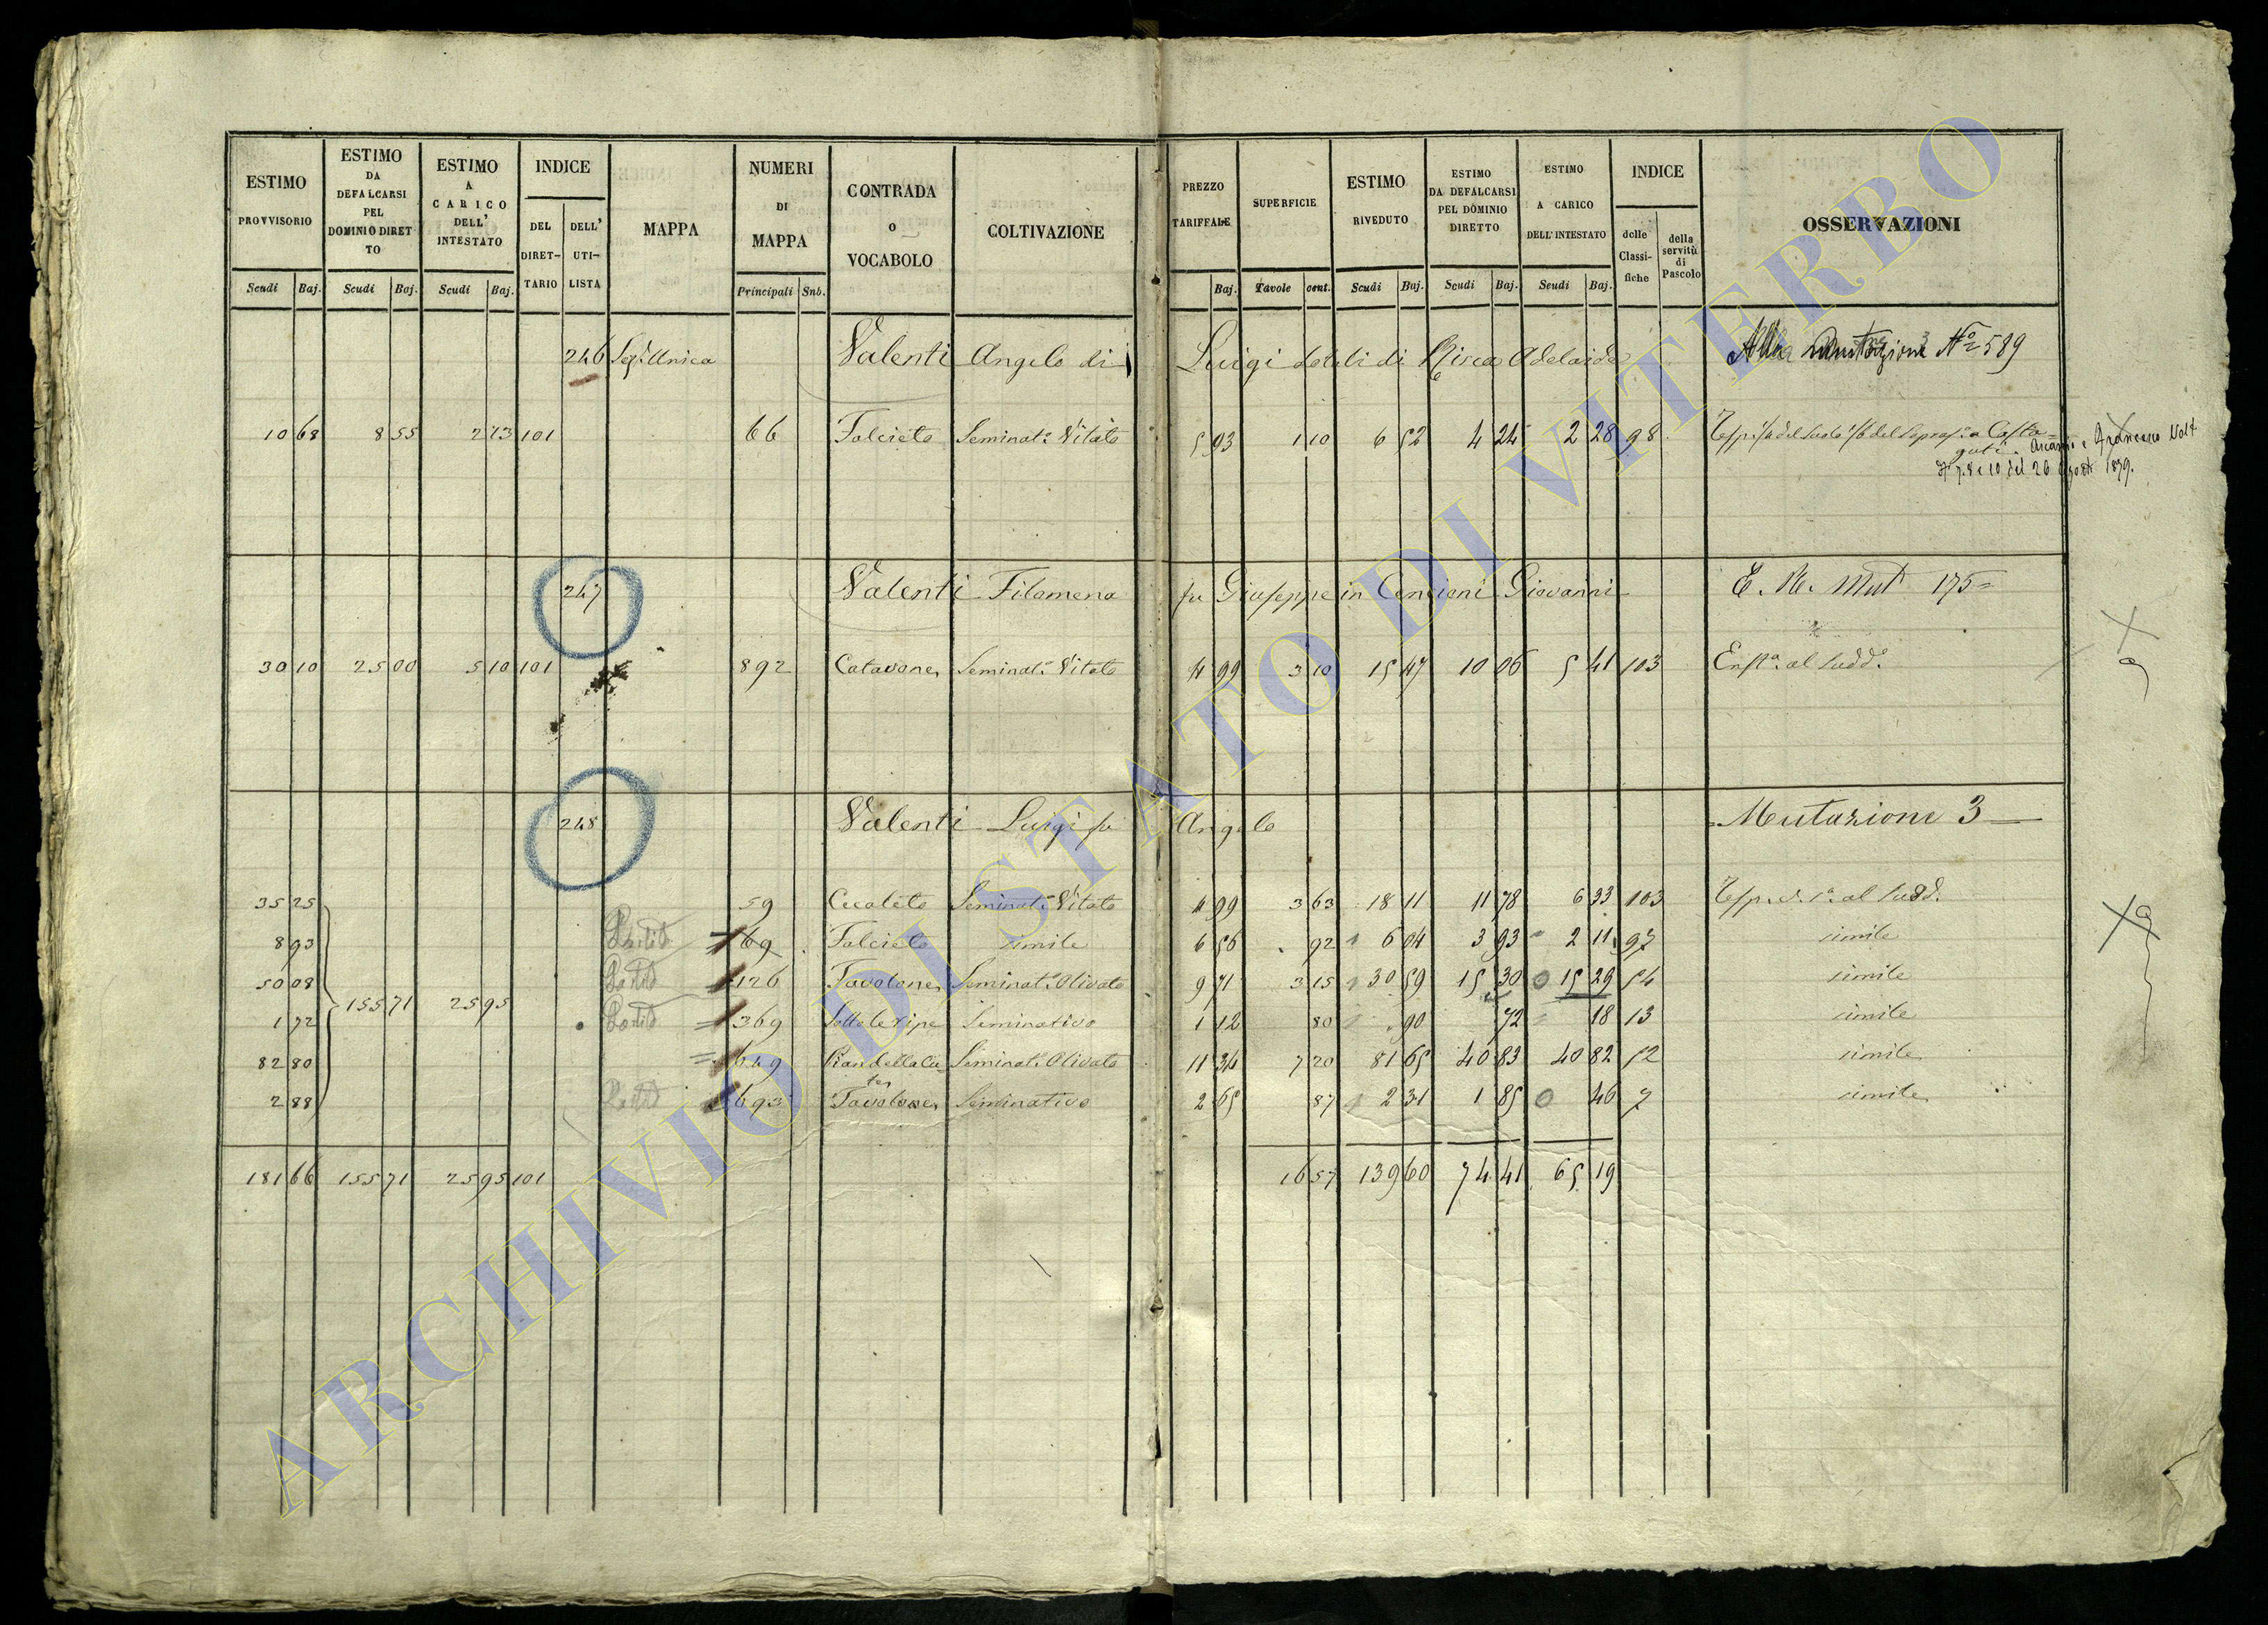 ESTIMO PROVVISORIO
ESTIMO DA DEFALCARSI PEL DOMINIO DIRETTO
ESTIMO A CARICO DELL' INTESTATO
INDICE
DEL DIRET-TARIO
DELL' UTI-LISTA
MAPPA
NUMERI DI MAPPA
CONTRADA O VOCABOLO
COLTIVAZIONE
PREZZO TARIFFALE
SUPERFICIE
ESTIMO RIVEDUTO
ESTIMO DA DEFALCARSI PEL DOMINIO DIRETTO
ESTIMO A CARICO DELL' INTESTATO
INDICE
delle Classi-fiche
della servitù di Pascolo
OSSERVAZIONI
Scudi Baj. Scudi Baj. Scudi Baj. Principali Sub. Baj. Tavole cent. Scudi Baj. Scudi Baj. Scudi Baj.
246 Sez. Unica Valenti Angelo di Luigi dotali di Adelaide Alla Nº 589
10 68 8 55 2 13 101 66 Falcieto Seminat. Vitato 5 93 1 10 6 52 4 24 2 28 98
del 26 Agosto 1879.
247 Valenti Filomena fu Giuseppe in Concioni Giovanni E. R. Mut 175
30 10 25 00 5 10 101 892 Catavone Seminat. Vitato 4 99 3 10 15 47 10 06 5 41 103 al sudd.
248 Valenti Luigi fu Angelo Mutazione 3
35 25 59 Seminat. Vitato 4 99 3 63 18 11 11 78 6 33 103 al sudd.
8 93 69 Falcieto simile 6 56 92 6 04 3 93 2 11 97 simile
50 08 126 Tavolone Seminat. Olivato 9 71 3 15 30 59 15 30 15 29 54 simile
155 71 25 95
1 72 369 Sottoleripe Seminativo 1 12 80 90 72 18 13 simile
82 80 649 Seminat. Olivato 11 34 7 20 81 65 40 83 40 82 52 simile
2 88 693 Tavolone Seminativo 2 65 87 2 31 1 85 46 7 simile
181 66 155 71 25 95 101 16 57 139 60 74 41 65 19
ARCHIVIO DI STATO DI VITERBO